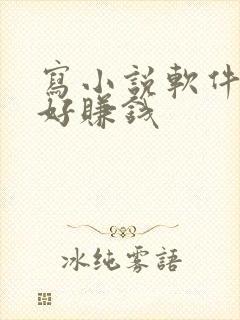 寫小説軟件
好賺錢
冰纯雾語